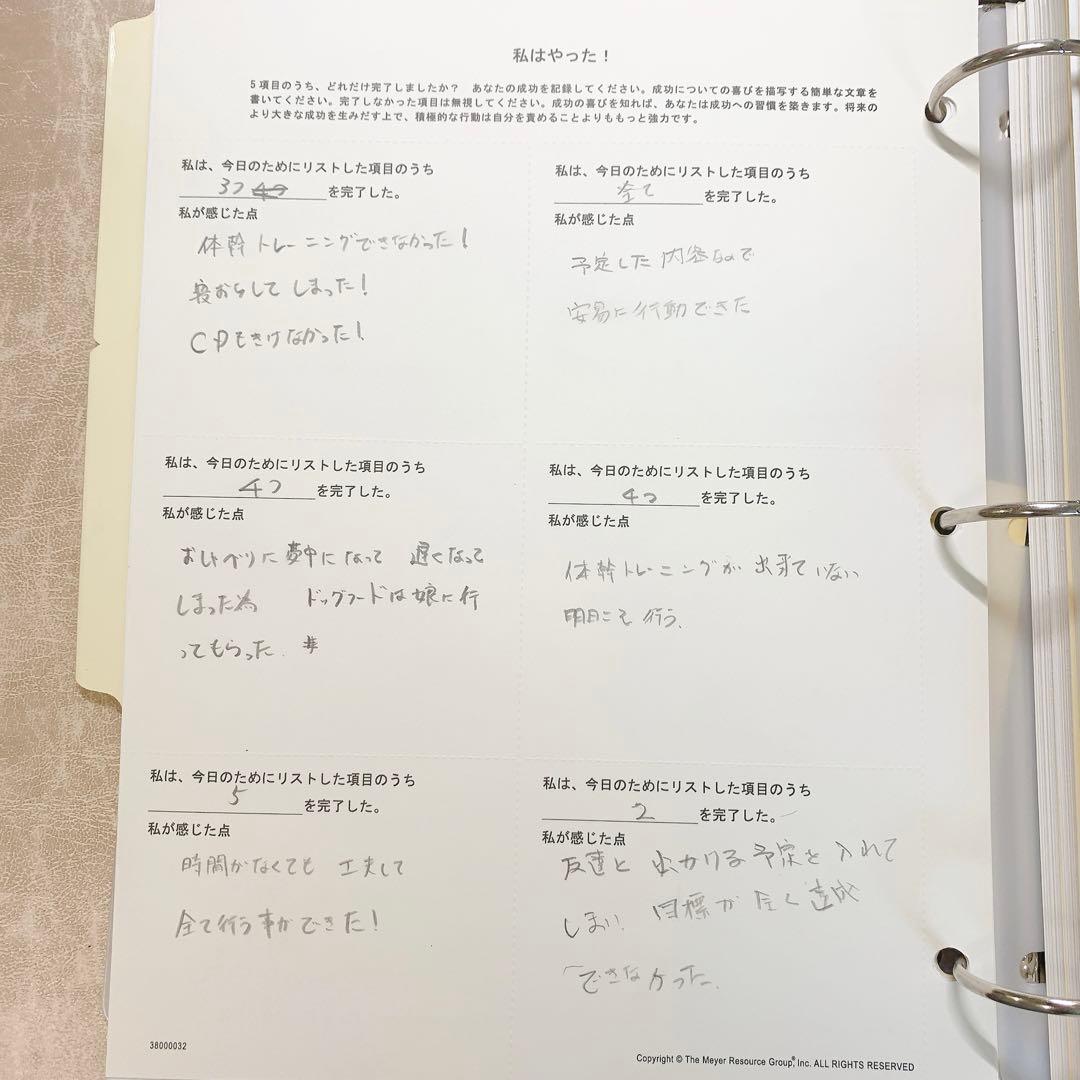 私はやった！
5項目のうち、どれだけ完了しましたか？　あなたの成功を記録してください。成功についての喜びを描写する簡単な文章を
書いてください。完了しなかった項目は無視してください。成功の喜びを知れば、あなたは成功への習慣を築きます。将来の
より大きな成功を生みだす上で、積極的な行動は自分を責めることよりももっと強力です。
私は、今日のためにリストした項目のうち
3つ 4つ を完了した。
私が感じた点
体幹トレーニングできなかった！
寝おちしてしまった！
CDもきけなかった！
私は、今日のためにリストした項目のうち
全て を完了した。
私が感じた点
予定した内容なので
安易に行動できた
私は、今日のためにリストした項目のうち
4つ を完了した。
私が感じた点
おしゃべりに夢中になって 遅くなって
しまった為 ドッグフードは娘に行
ってもらった.
私は、今日のためにリストした項目のうち
4つ を完了した。
私が感じた点
体幹トレーニングが出来ていない
明日こそ行う.
私は、今日のためにリストした項目のうち
5 を完了した。
私が感じた点
時間がなくても 工夫して
全て行う事ができた！
私は、今日のためにリストした項目のうち
2 を完了した。
私が感じた点
友達と出かける予定を入れて
しまい 目標が全く達成
できなかった.
38000032
Copyright © The Meyer Resource Group,® Inc. ALL RIGHTS RESERVED